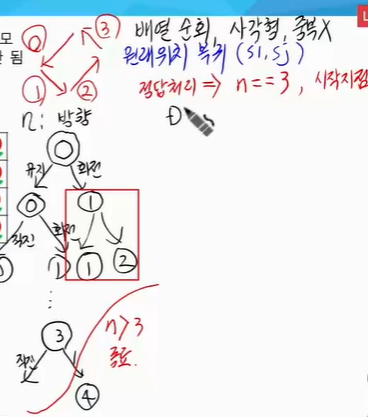 모
한 됨
0 3
1 2
배열 순회, 사각형, 중복X
원래위치 복귀 (si, sj)
정답처리 => n==3, 시작지점
Đ
n: 방향
0
유지 회전
0 1
직진 회전
1 1 2
3
직진
4
n>3
종료.